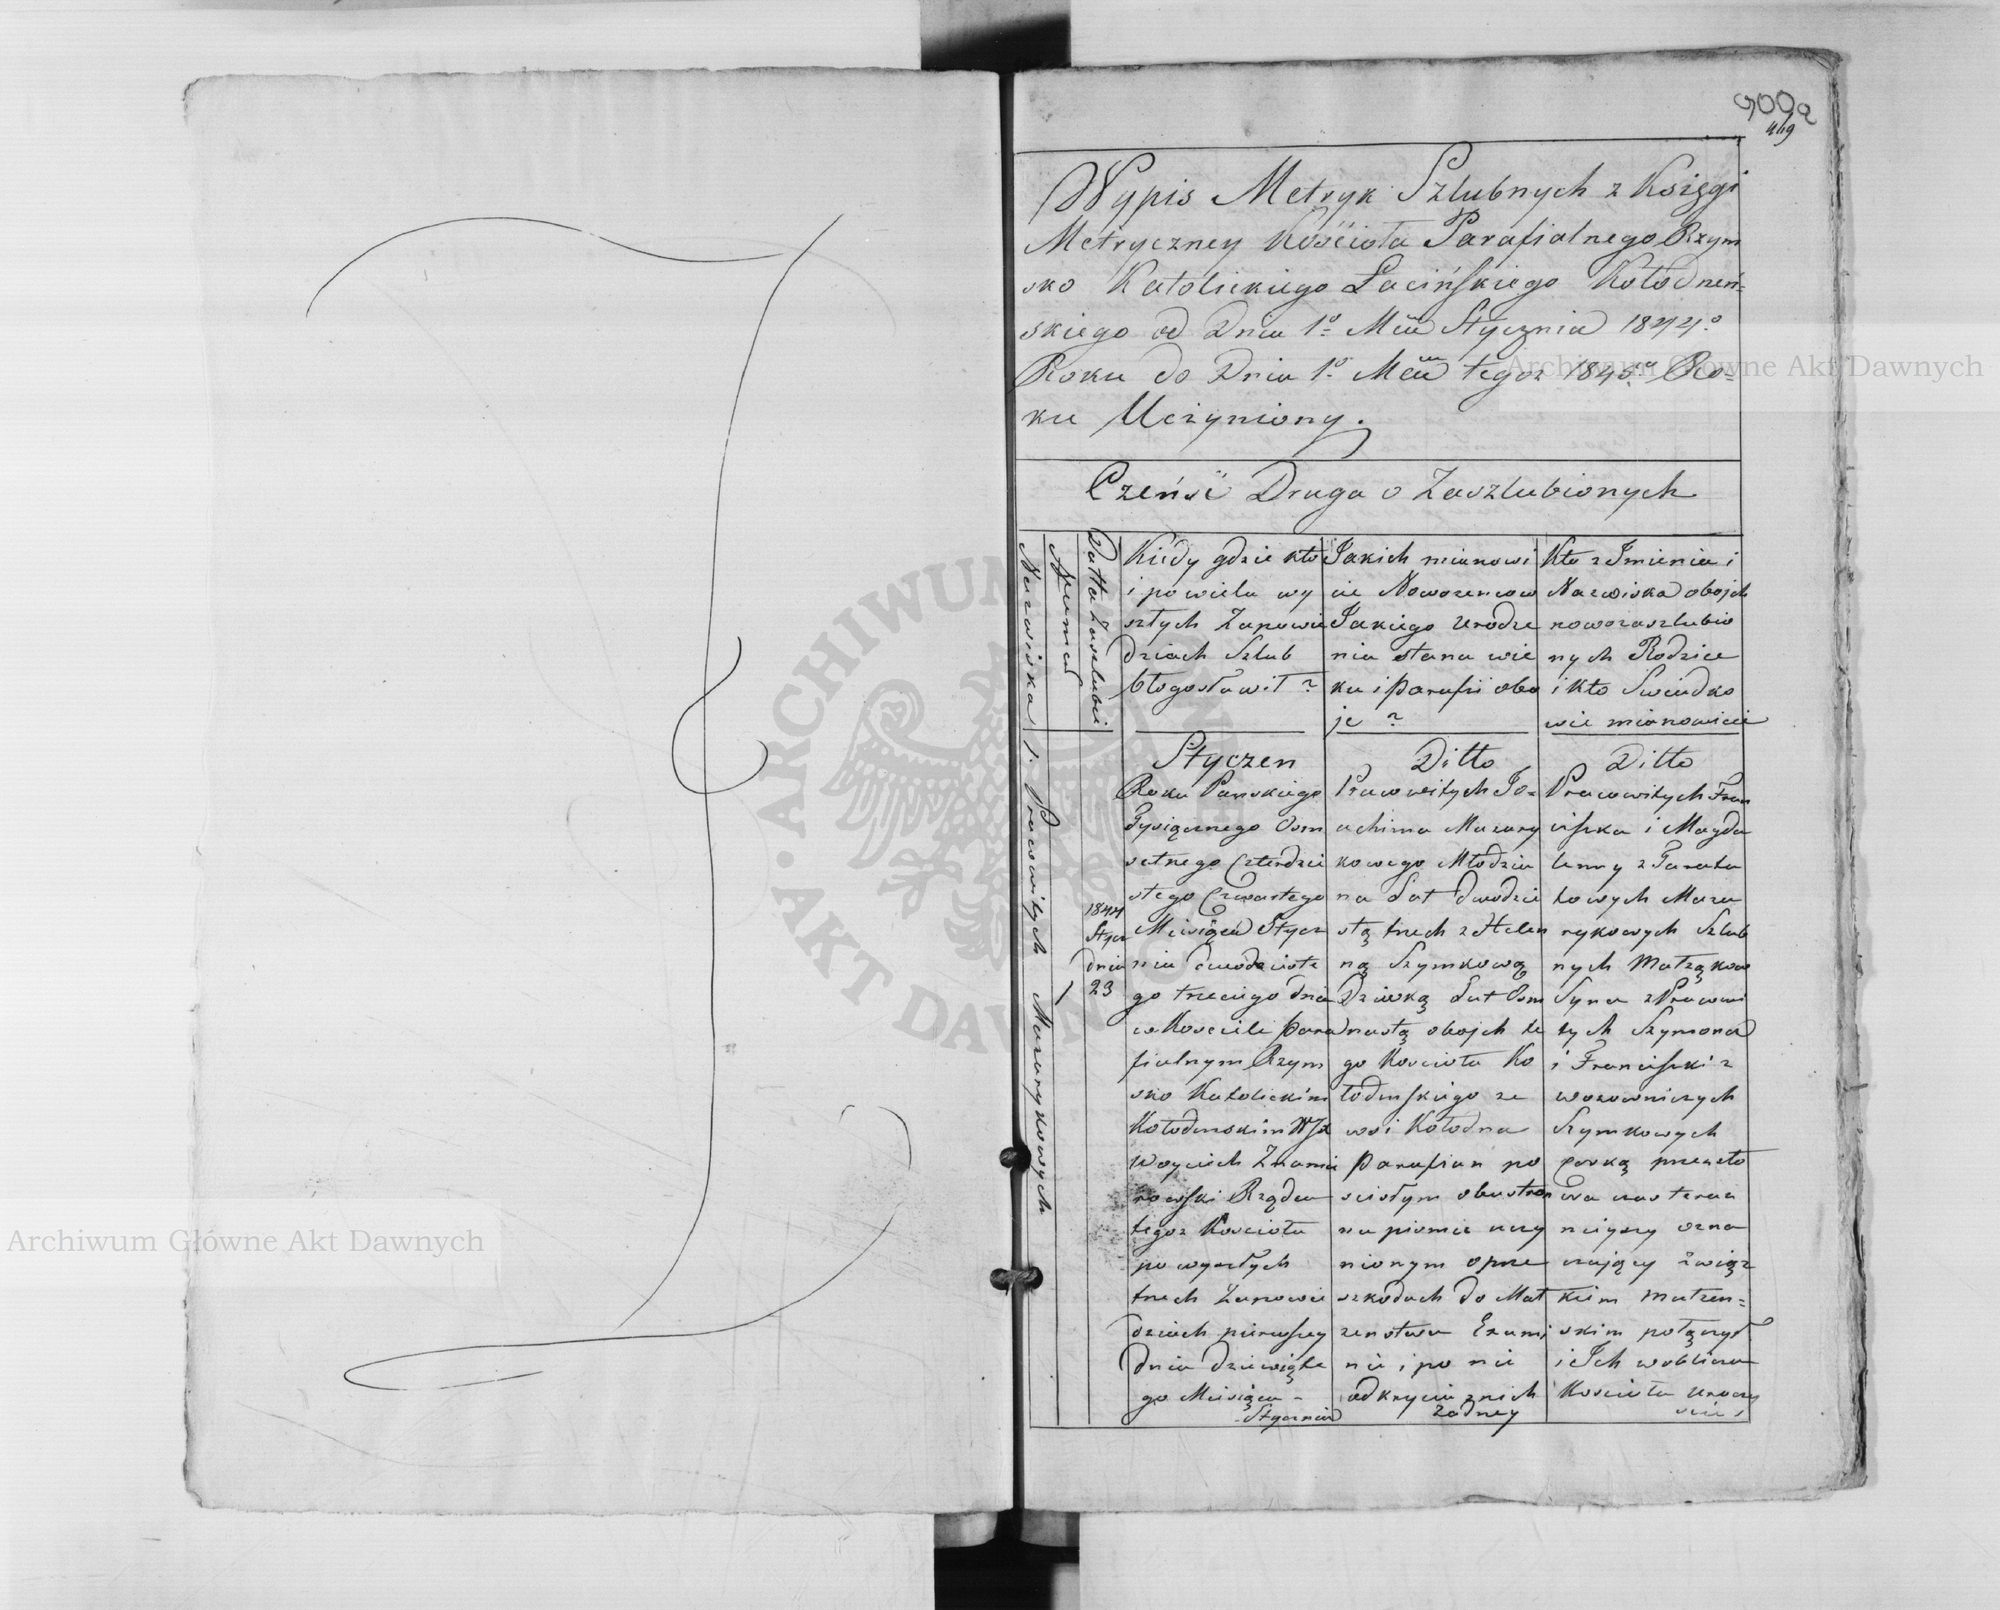 909a
419
Wypis Metryk Szlubnych z Księgi
Metryczney Kościoła Parafialnego Rzym
sko Katolickiego Łacińskiego Kołodneń=
skiego od Dnia 1º Mca Stycznia 1844º
Roku do Dnia 1º Mca tegoz 1845º Ro=
ku Uczyniony.
Czeńść Druga o Zaszlubionych
Nazwiska
Numer
Datta Zaszlubie
Kiedy gdzie kto
i po wielu wy
szłych Zapowie
dziach Szlub
błogosławił ?
Jakich mianowi
cie Nowozencow
Jakiego urodze
nia stanu wie
ku i parafii obo
je ?
Kto z Imienia i
Nazwiska obojch
nowozaszlubio
nych Rodzice
i kto Swiadko
wie mianowicie
1. Pracowitych Mazurykowych
1
1844
Stycz
dnia
23
Styczen
Roku Panskiego
Tysiącznego Osm
setnego Czterdzie
stego Czwartego
Miesiąca Stycz
nia dwodzieste
go trzeciego dnia
w Kosciele para
fialnym Rzym
sko Katolickim
Kołodenskim WJX
Woyciech
Rządca
tegoz Kosciola
po wyszłych
trzech Zapowie
dziach pierwszey
dnia dziewiąte
go Miesiąca -
Stycznia
Ditto
Pracowitych Jo=
achima Mazury
kowego Młodzia
na Lat dwodzie
stą trzech z Helen
ną Szymkową
Dziwką Lat Osm
nastą obojch te
go Kosciola Ko
łodenskiego ze
wsi Kołodna
Parafian po
scisłym obustron
na pismie uczy
nionym o prze
szkodach do Mał
zenstwa Exami
nie i po nie
odkryciu z nich
Zadney
Ditto
Pracowitych Fran
ciszka i Magda
leny z
Mazu
rykowych Szlub
nych Małząkow
Syna z Pracowi
tych Szymona
i Franciszki z
Szymkowych
Corką przez to
oznа
czający Związ
kiem małzen=
skim połączył
i Ich w obliczu
Kosciola uroczy
scie
ARCHIWUM GŁÓWNE AKT DAWNYCH
Archiwum Główne Akt Dawnych
Archiwum Główne Akt Dawnych